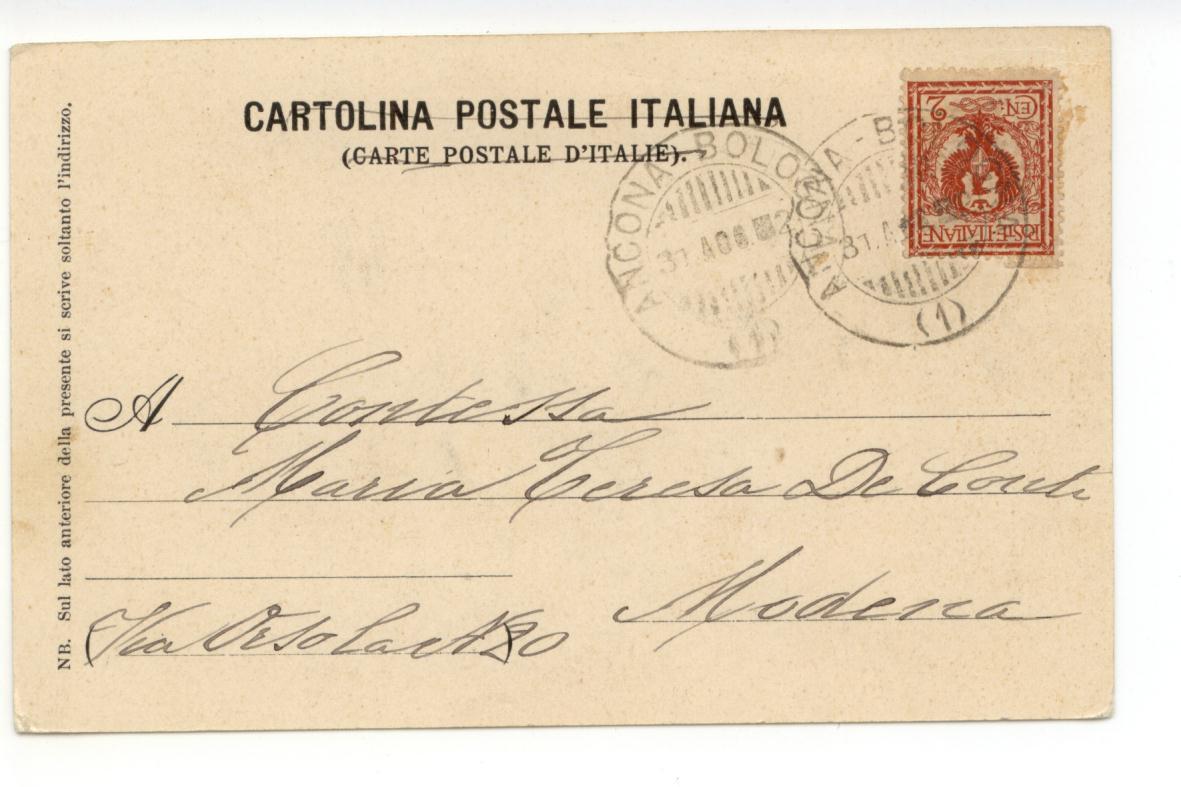 CARTOLINA POSTALE ITALIANA
(CARTE POSTALE D'ITALIE).
CEN. 2
POSTE-ITALIANE
ANCONA-BOLOGNA
31.AGO
(1)
ANCONA-B
31.AGO
(1)
A Contessa
Maria Teresa De Conti
Modena
(Via Orsolae N 20
NB. Sul lato anteriore della presente si scrive soltanto l'indirizzo.